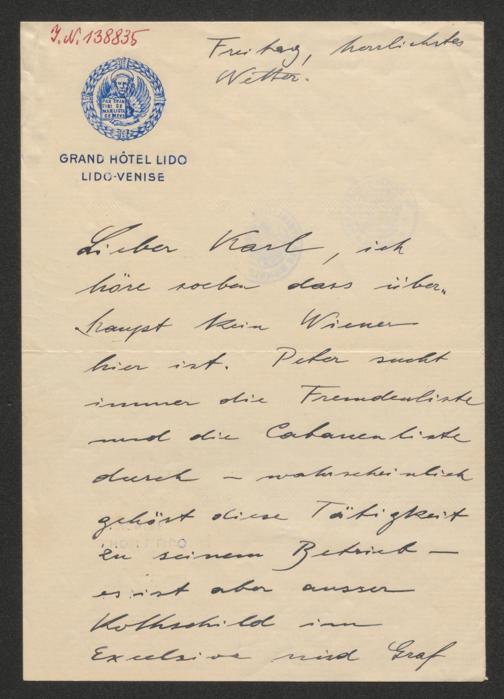 J.N. 138835
Freitag, herrlichstes
Wetter.
PAX TIBI
GRAND HÔTEL LIDO
LIDO-VENISE
Lieber Karl, ich
höre soeben dass über-
haupt kein Wiener
hier ist. Peter sucht
immer die Fremdenliste
und die Cabanenliste
durch – wahrscheinlich
gehört diese Tätigkeit
zu seinem Betrieb –
es ist aber ausser
Rothschild im
Excelsior und Graf